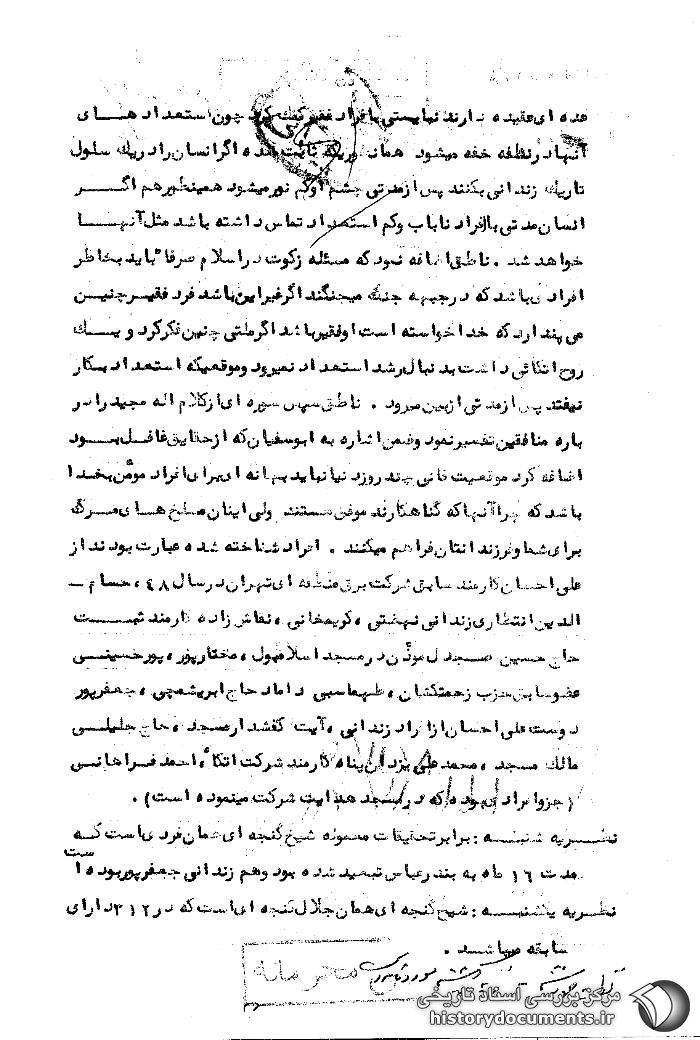 عده ای عقیده دارند نبایستی با افراد فقیر کمک کرد چون استعداد های
آنها در نطفه خفه میشود همانطوریکه ثابت شده اگر انسان را در یک سلول
تاریک زندانی بکنند پس از مدتی چشم او کم نور میشود همینطور هم اگر
انسان مدتی با افراد ناباب و کم استعداد تماس داشته باشد مثل آنها
خواهد شد . ناطق اضافه نمود که مسئله زکوت در اسلام صرفا" باید بخاطر
افرادی باشد که در جبهه جنگ میجنگند اگر غیر این باشد فرد فقیر چنین
می پندارد که خدا خواسته است او فقیر باشد اگر ملتی چنین فکر کرد و یک
روح اتکائی داشت بدنبال رشد استعداد نمیرود و موقعیکه استعداد بکار
نیفتد پس از مدتی از بین میرود . ناطق سپس سوره ای از کلام اله مجید را در
باره منافقین تفسیر نمود و ضمن اشاره به ابوسفیان که از حقایق غافل بود
اضافه کرد موقعیت فانی چند روز دنیا نباید بهانه ای برای افراد مومن بخدا
باشد که چرا آنها که گناهکارند موفق هستند ولی اینان مسلخ های مرگ
برای شما و فرزندانتان فراهم میکنند . افراد شناخته شده عبارت بودند از
علی احسان کارمند سابق شرکت برق منطقه ای تهران در سال ۴۸ ، حسام -
الدین انتظاری زندانی نهضتی ، کریمخانی ، نقاش زاده کارمند ثبت
حاج حسین صیدل موذن در مسجد اسلامبول ، مختارپور ، پورحسینی
عضو سابق حزب زحمتکشان ، طهماسبی داماد حاج ابریشمچی ، جعفرپور
دوست علی احسان از افراد زندانی ، آیت کفشدار مسجد ، حاج جلیلی
مالک مسجد ، محمد علی یزدان پناه کارمند شرکت اتکا ، احمد فراهانی
(جزو افرادی بوده که در مسجد هدایت شرکت مینموده است) .
نظریه شنبه : برابر تحقیقات معموله شیخ گنجه ای همان فردی است که
مدت ۱۶ ماه به بندرعباس تبعید شده بود و هم زندانی جعفرپور بوده است
نظریه یکشنبه : شیخ گنجه ای همان جلال گنجه ای است که در ۳۱۲ دارای
سابقه میباشد .
محرمانه
مرکز بررسی اسناد تاریخی
historydocuments.ir